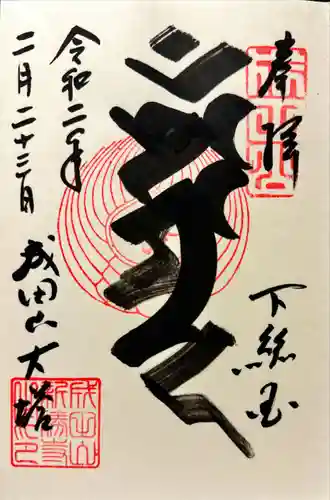 奉拝
下総国
令和二年
二月二十三日
成田山大塔
成田山
新勝寺